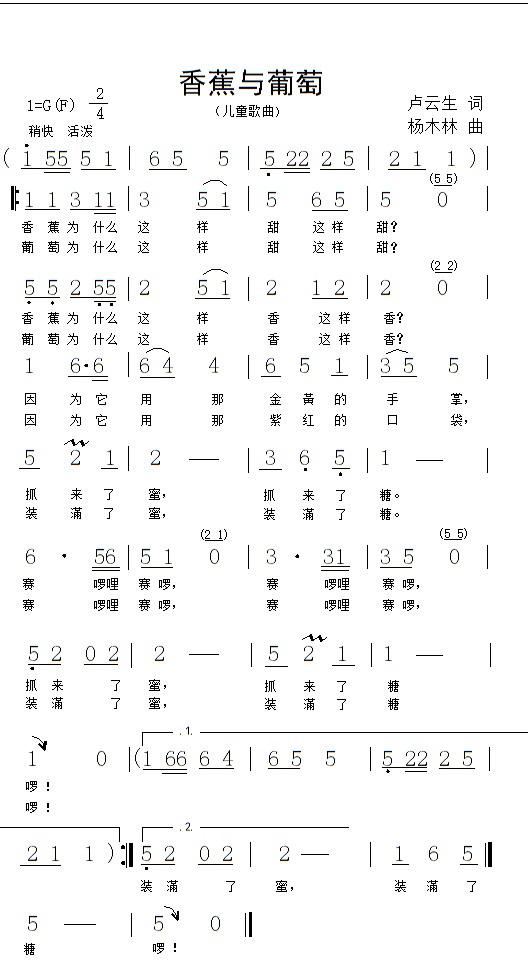 香蕉与葡萄
(儿童歌曲)
1=G(F) 2/4
卢云生 词
稍快 活泼
杨木林 曲
( 1 55 5 1 | 6 5 5 | 5 22 2 5 | 2 1 1 ) |
(5 5)
1 1 3 11 | 3 5 1 | 5 6 5 | 5 0 |
香 蕉 为 什么 这 样 甜 这样 甜?
葡 萄 为 什么 这 样 甜 这样 甜?
(2 2)
5 5 2 55 | 2 5 1 | 2 1 2 | 2 0 |
香 蕉 为 什么 这 样 香 这样 香?
葡 萄 为 什么 这 样 香 这样 香?
1 6·6 | 6 4 4 | 6 5 1 | 3 5 5 |
因 为它 用 那 金 黄 的 手 掌,
因 为它 用 那 紫 红 的 口 袋,
5 2 1 | 2 — | 3 6 5 | 1 — |
抓 来 了 蜜, 抓 来 了 糖。
装 满 了 蜜, 装 满 了 糖。
(2 1) (5 5)
6 · 56 | 5 1 0 | 3 · 31 | 3 5 0 |
赛 啰哩 赛 啰, 赛 啰哩 赛 啰,
赛 啰哩 赛 啰, 赛 啰哩 赛 啰,
5 2 0 2 | 2 — | 5 2 1 | 1 — |
抓 来 了 蜜, 抓 来 了 糖
装 满 了 蜜, 装 满 了 糖
.1.
1 0 | (1 66 6 4 | 6 5 5 | 5 22 2 5 |
啰!
啰!
.2.
2 1 1 ) :| 5 2 0 2 | 2 — | 1 6 5 |
装 满 了 蜜, 装 满 了
5 — | 5 0 |
糖 啰!